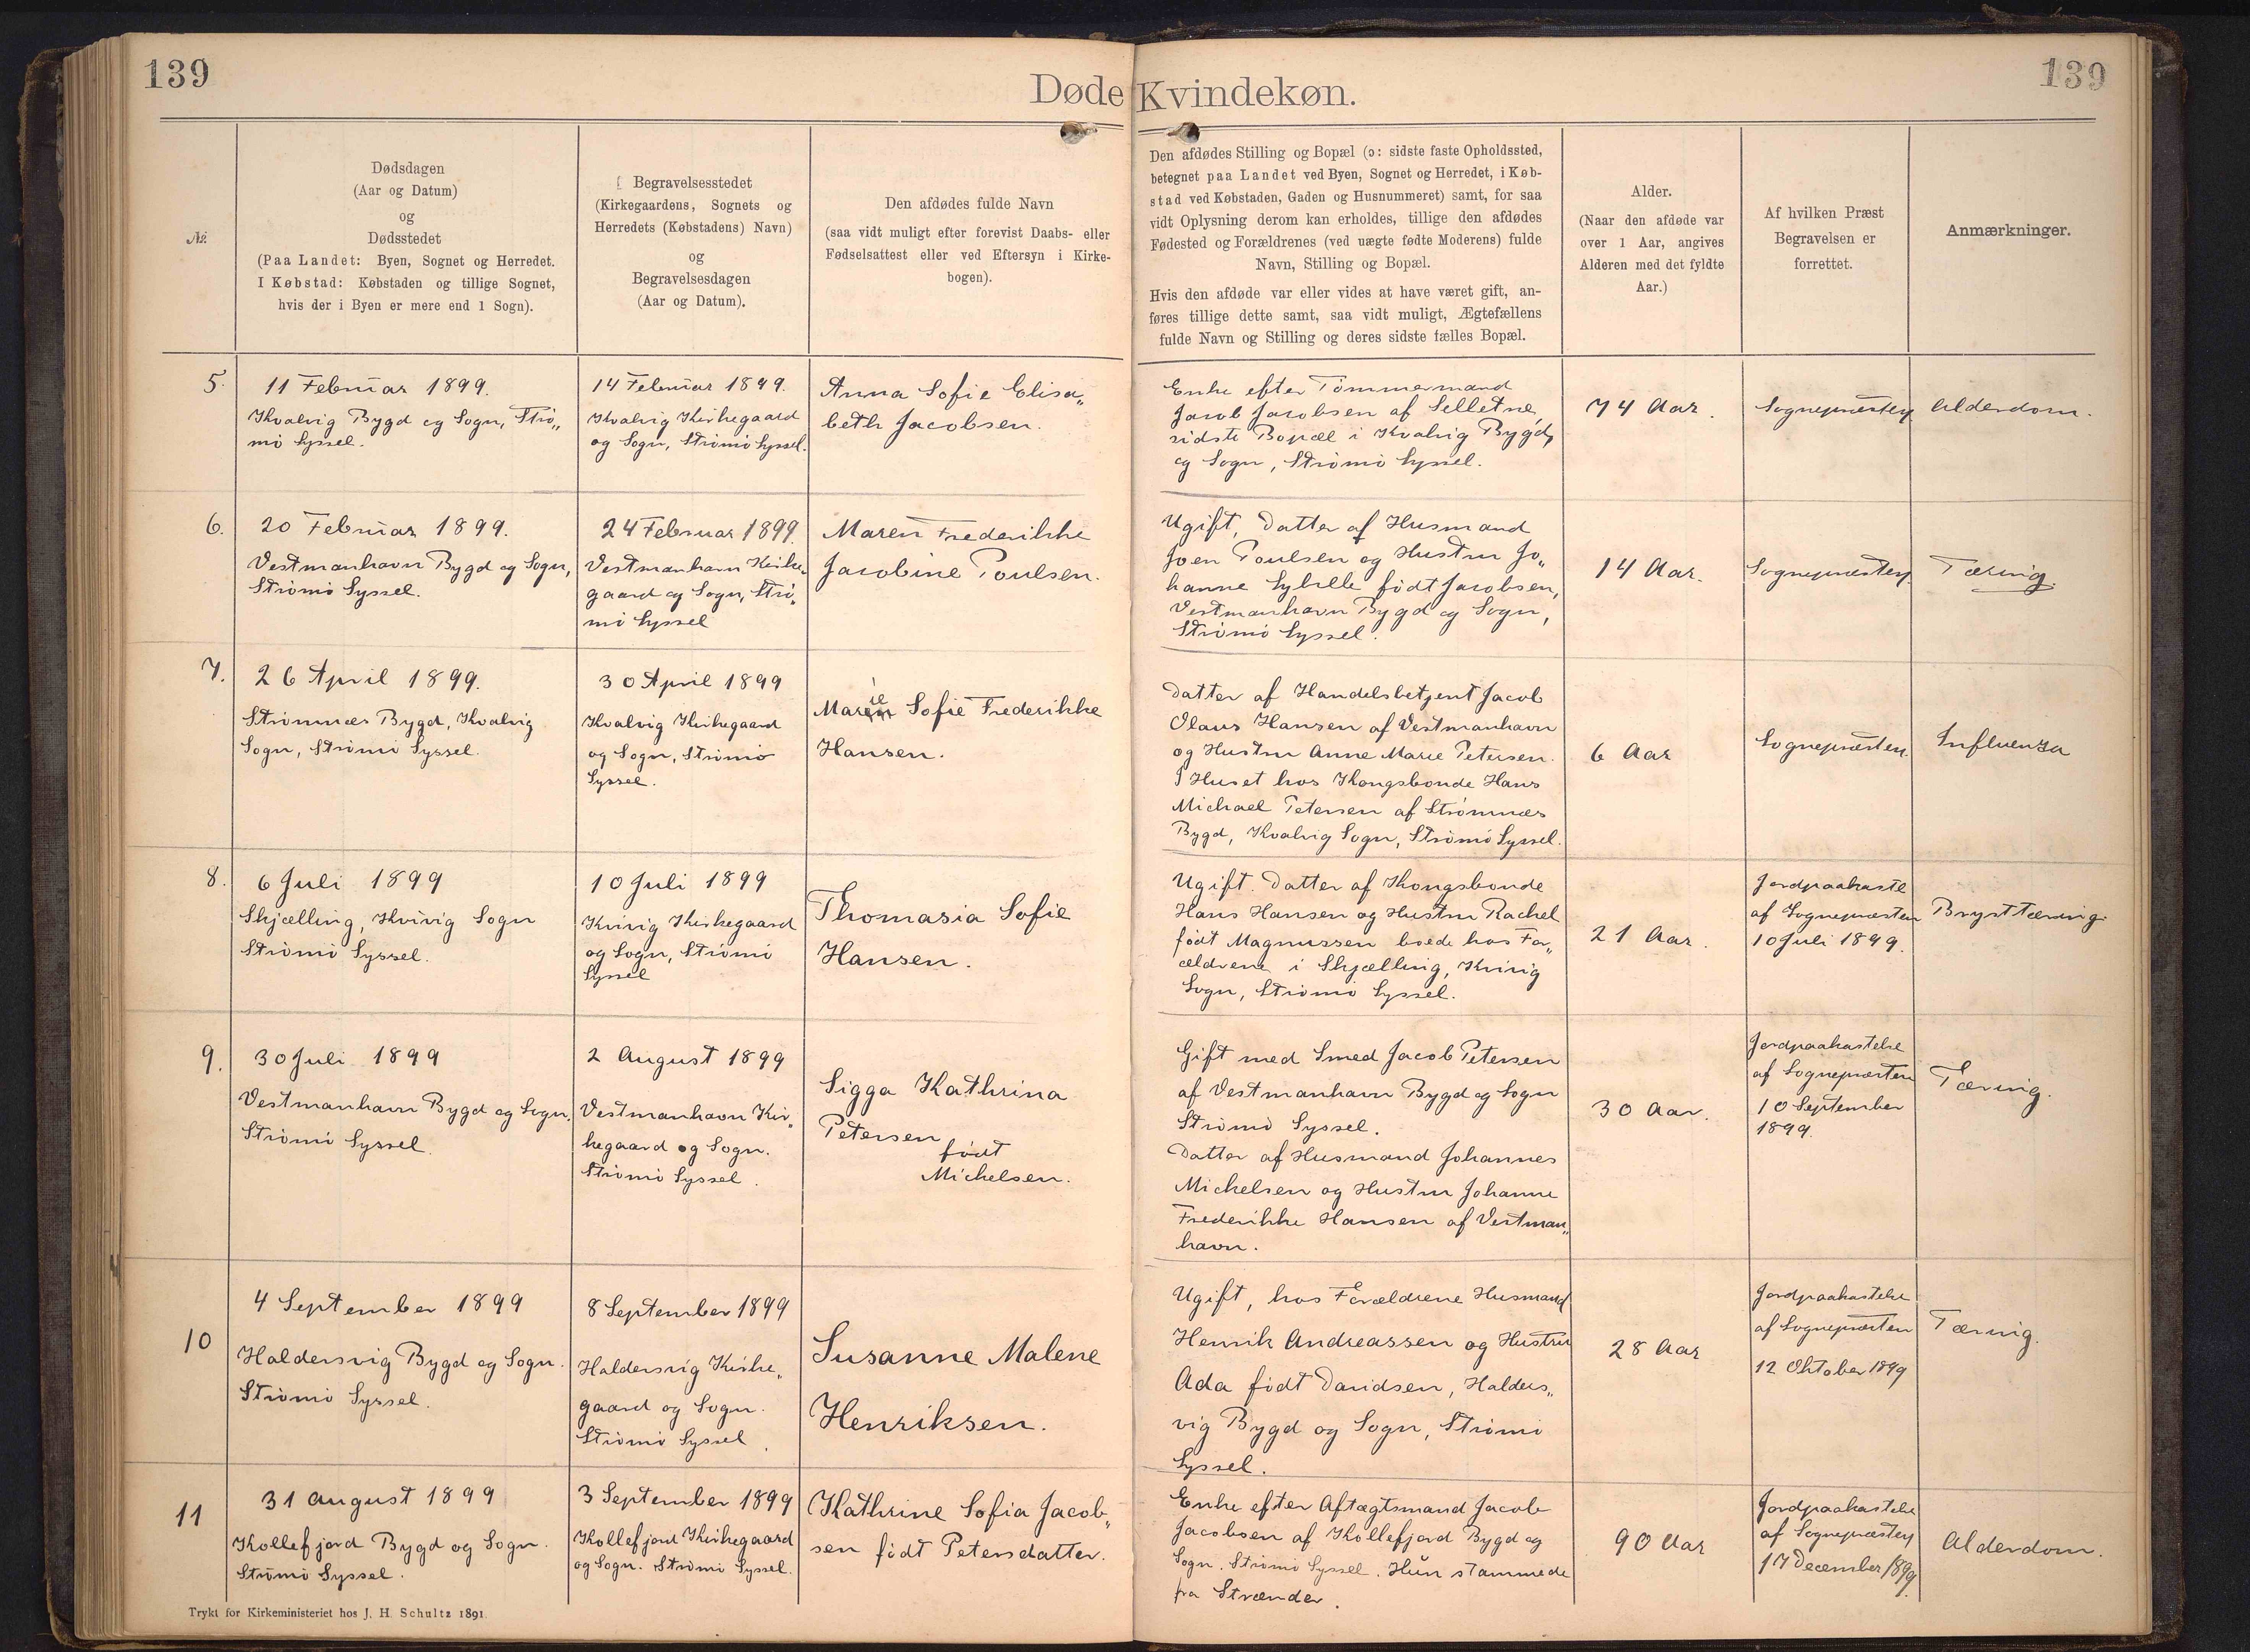 139
139
Døde Kvindekøn.
№.
Dødsdagen
(Aar og Datum)
og
Dødsstedet
(Paa Landet: Byen, Sognet og Herredet.
I Købstad: Købstaden og tillige Sognet,
hvis der i Byen er mere end 1 Sogn).
Begravelsesstedet
(Kirkegaardens, Sognets og
Herredets (Købstadens) Navn)
og
Begravelsesdagen
(Aar og Datum).
Den afdødes fulde Navn
(saa vidt muligt efter forevist Daabs- eller
Fødselsattest eller ved Eftersyn i Kirke-
bogen).
Den afdødes Stilling og Bopæl (ɔ: sidste faste Opholdssted,
betegnet paa Landet ved Byen, Sognet og Herredet, i Køb-
stad ved Købstaden, Gaden og Husnummeret) samt, for saa
vidt Oplysning derom kan erholdes, tillige den afdødes
Fødested og Forældrenes (ved uægte fødte Moderens) fulde
Navn, Stilling og Bopæl.
Hvis den afdøde var eller vides at have været gift, an-
føres tillige dette samt, saa vidt muligt, Ægtefællens
fulde Navn og Stilling og deres sidste fælles Bopæl.
Alder.
(Naar den afdøde var
over 1 Aar, angives
Alderen med det fyldte
Aar.)
Af hvilken Præst
Begravelsen er
forrettet.
Anmærkninger.
5.
11 Februar 1899.
Kvalvig Bygd og Sogn, Strø„
mø Syssel.
14 Februar 1899.
Kvalvig Kirkegaard
og Sogn, Strømø Syssel.
Anna Sofie Elisa„
beth Jacobsen.
Enke efter Tømmermand
Jacob Jacobsen af Selletræ,
sidste Bopæl i Kvalvig Bygd,
og Sogn, Strømø Syssel.
74 Aar.
Sognepræsten
Alderdom.
6.
20 Februar 1899.
Vestmanhavn Bygd og Sogn,
Strømø Syssel.
24 Februar 1899.
Vestmanhavn Kirke„
gaard og Sogn, Strø„
mø Syssel
Maren Frederikke
Jacobine Poulsen.
Ugift, Datter af Husmand
Joen Poulsen og Hustru Jo„
hanne Sybille født Jacobsen,
Vestmanhavn Bygd og Sogn,
Strømø Syssel.
14 Aar.
Sognepræsten
Tæring.
7.
26 April 1899.
Strømnæs Bygd, Kvalvig
Sogn, Strømø Syssel.
30 April 1899
Kvalvig Kirkegaard
og Sogn, Strømø
Syssel.
ie
Maren Sofie Frederikke
Hansen.
Datter af Handelsbetjent Jacob
Olaus Hansen af Vestmanhavn
og Hustru Anne Marie Petersen.
I Huset hos Kongsbonde Hans
Michael Petersen af Strømnæs
Bygd, Kvalvig Sogn, Strømø Syssel.
6 Aar
Sognepræsten.
Influenza
8.
6 Juli 1899
Skjælling, Kvivig Sogn
Strømø Syssel.
10 Juli 1899
Kvivig Kirkegaard
og Sogn, Strømø
Syssel
Thomasia Sofie
Hansen.
Ugift. Datter af Kongsbonde
Hans Hansen og Hustru Rachel
født Magnussen boede hos For„
ældrene i Skjælling, Kvivig
Sogn, Strømø Syssel.
21 Aar.
Jordpaakaste
af Sognepræsten
10 Juli 1899.
Brysttæring.
9.
30 Juli 1899
Vestmanhavn Bygd og Sogn.
Strømø Syssel.
2 August 1899
Vestmanhavn Kir„
kegaard og Sogn.
Strømø Syssel.
Sigga Kathrina
Petersen
født
Michelsen.
Gift med Smed Jacob Petersen
af Vestmanhavn Bygd og Sogn
Strømø Syssel.
Datter af Husmand Johannes
Michelsen og Hustru Johanne
Frederikke Hansen af Vestman„
havn.
30 Aar.
Jordpaakastelse
af Sognepræsten
10 September
1899.
Tæring.
10
4 September 1899
Haldersvig Bygd og Sogn.
Strømø Syssel.
8 September 1899
Haldersvig Kirke„
gaard og Sogn.
Strømø Syssel.
Susanne Malene
Henriksen.
Ugift, hos Forældrene Husmand
Henrik Andreassen og Hustru
Ada født Davidsen, Halders„
vig Bygd og Sogn, Strømø
Syssel.
28 Aar
Jordpaakastelse
af Sognepræsten
12 Oktober 1899
Tæring.
11
31 August 1899
Kollefjord Bygd og Sogn.
Strømø Syssel.
3 September 1899
Kollefjord Kirkegaard
og Sogn. Strømø Syssel.
Kathrine Sofia Jacob„
sen født Petersdatter.
Enke efter Aftægtsmand Jacob
Jacobsen af Kollefjord Bygd og
Sogn. Strømø Syssel. Hun stammede
fra Strænder.
90 Aar
Jordpaakastelse
af Sognepræsten
17 December 1899.
Alderdom.
Trykt for Kirkeministeriet hos J. H. Schultz 1891.